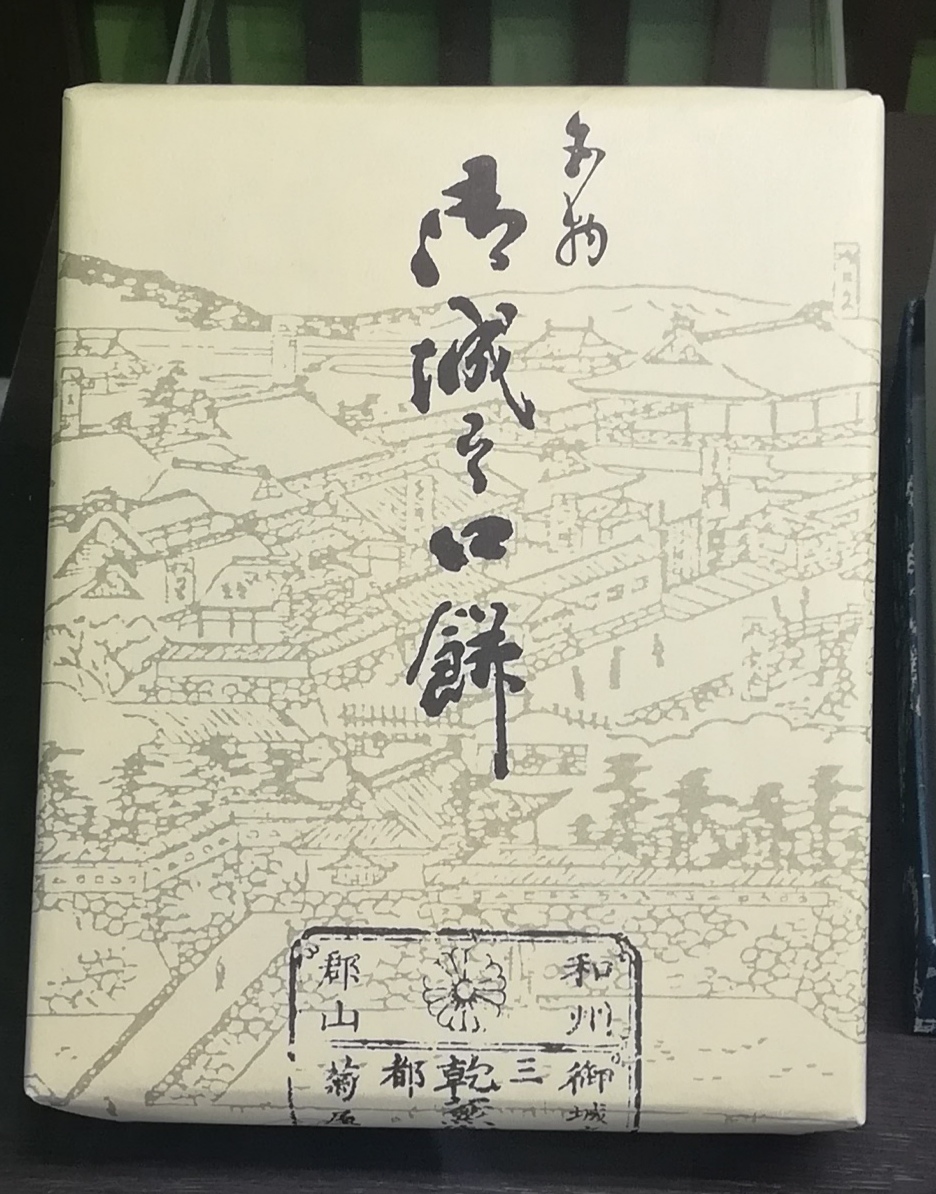 名物
御城之口餅
和州
御城
三都
乾菓
郡山
菊屋